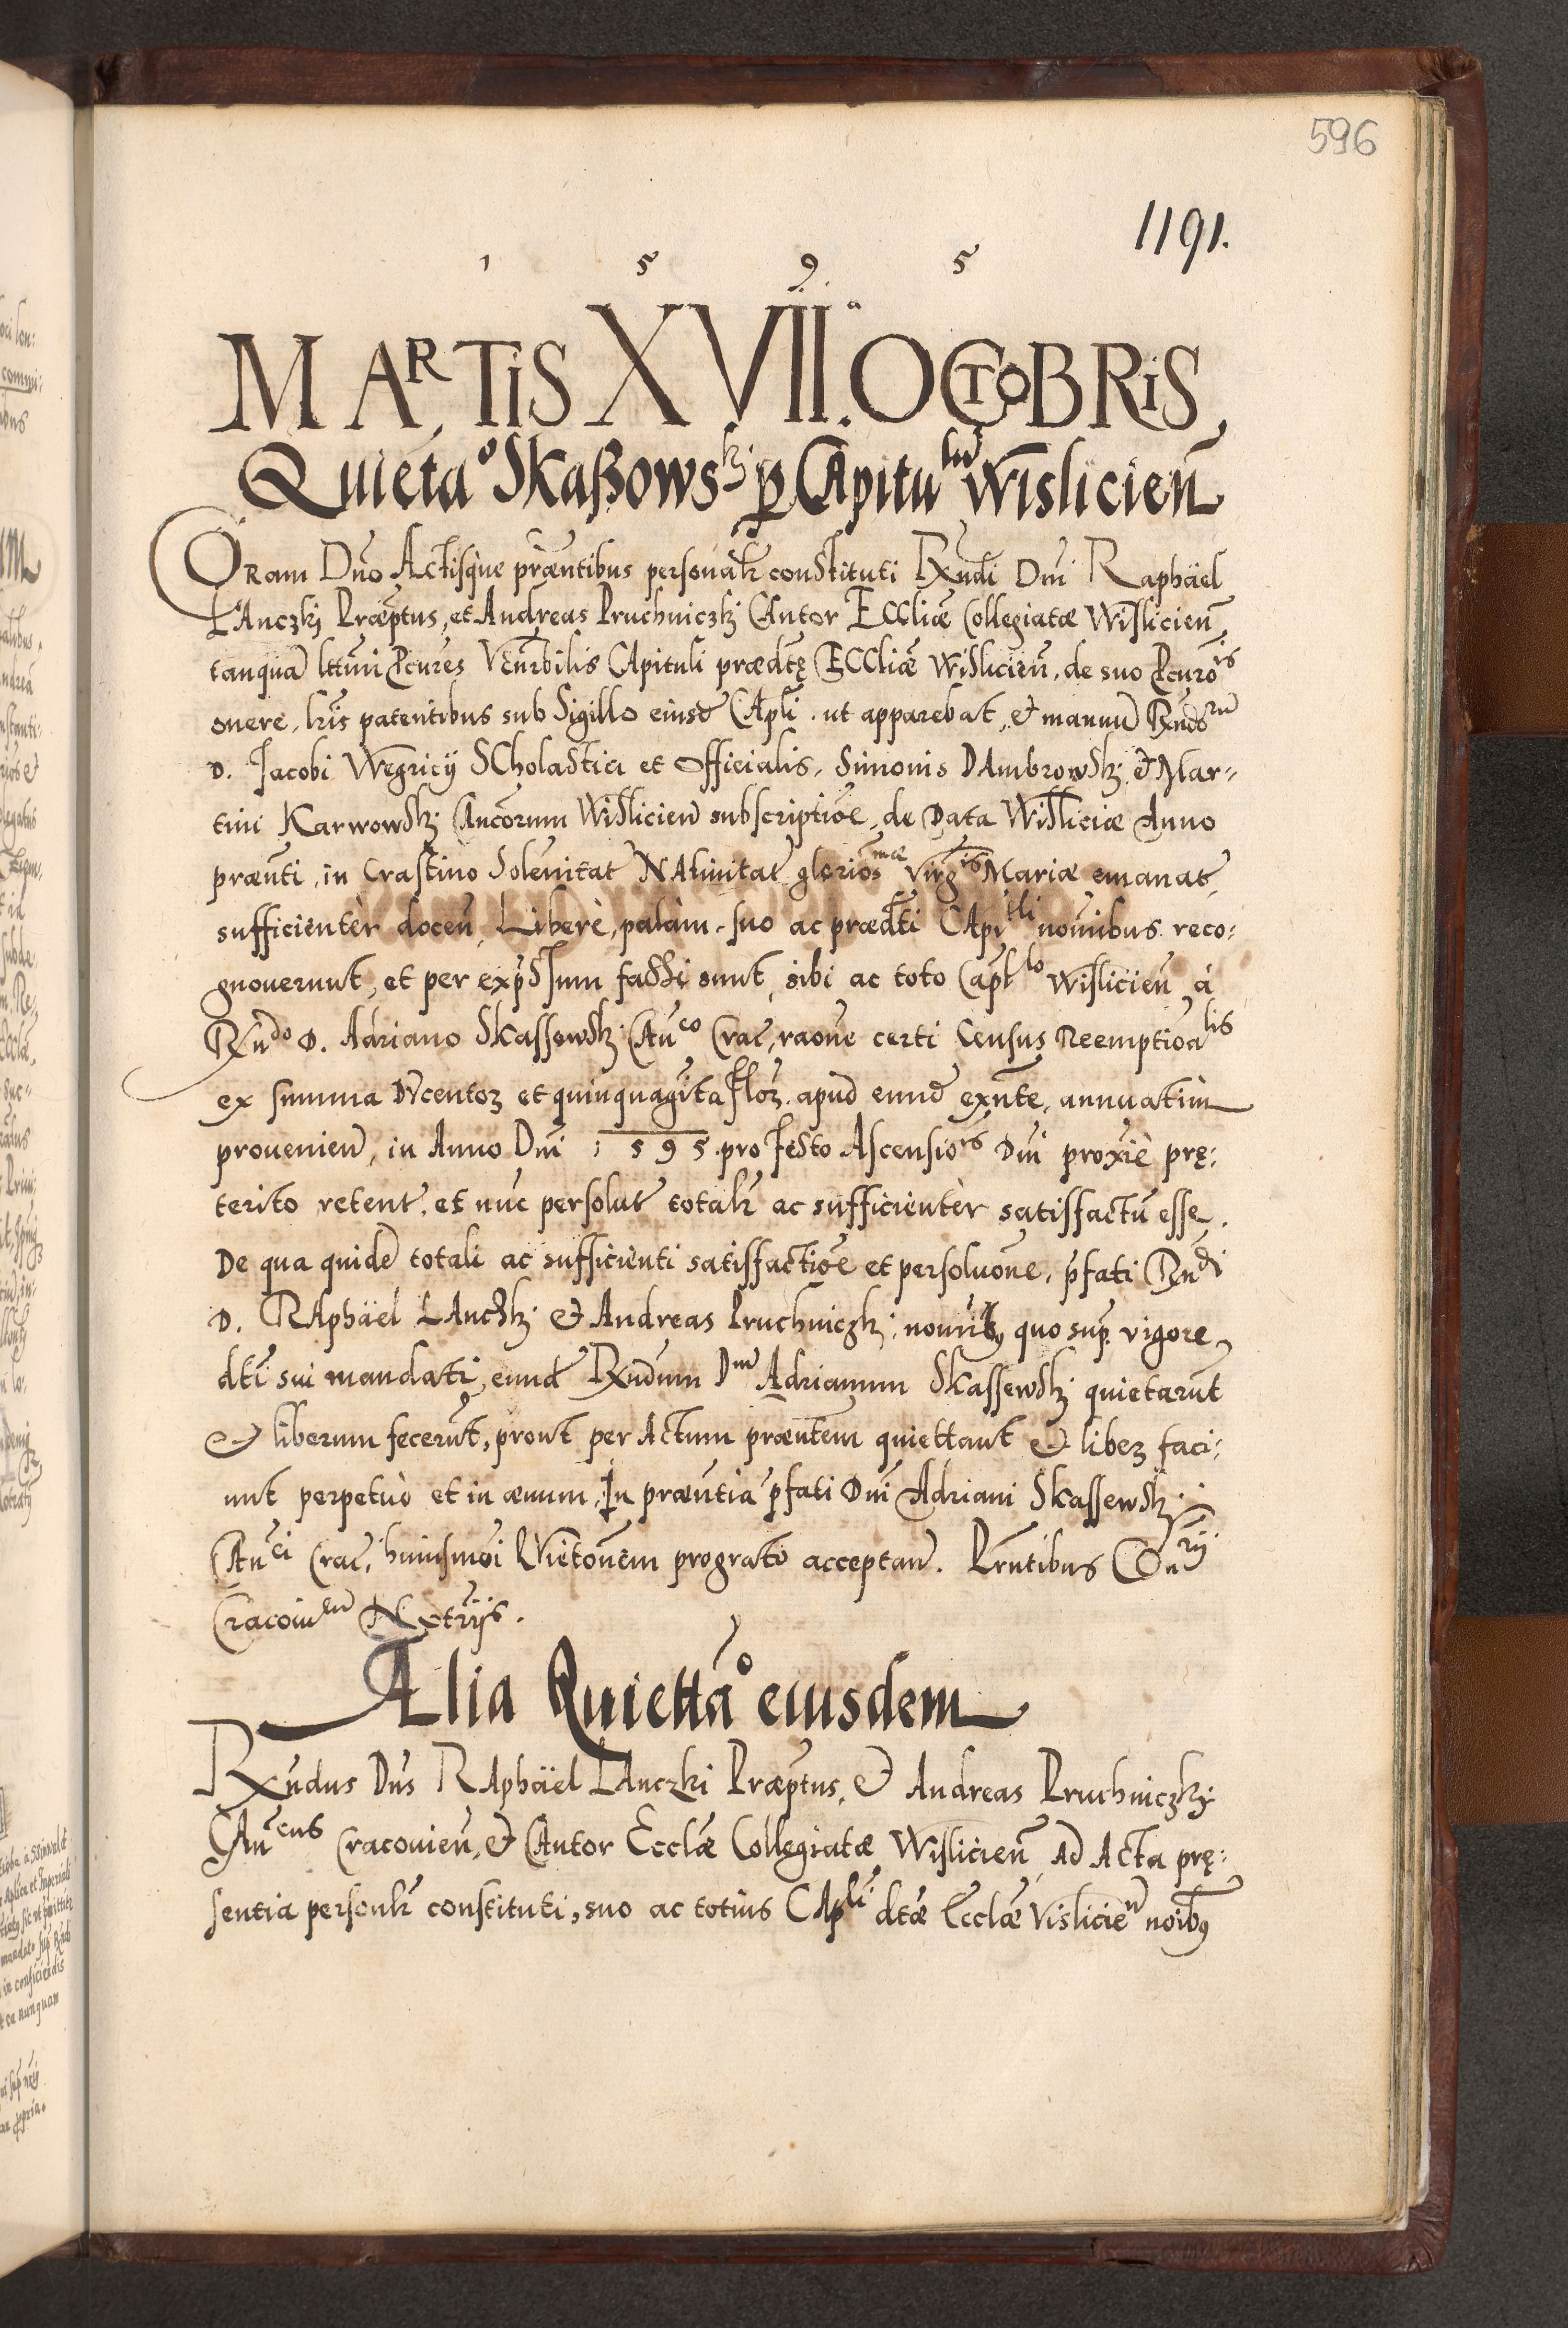 596
1191.
1 5 9 5
MARTIS XVII. OCTOBRIS,
Quietão Skaßowskj per Capitulũ Wislicieñ
Coram Dño Actisque præñtibus personalr constituti Rxñdi Dñi Raphäel
Lanczkj Præptus, et Andreas Pruchniczkj Cantor Eccliæ Collegiatæ Wisliciẽn,
tanquã lttimi Pcures Veñrbilis Capituli prædtę Eccliæ Wisliciẽn, de suo Pcurõis
onere, lris patentibus sub Sigillo eiusd Capli. ut apparebat, et manuũ Rxndorũ
D. Jacobi Wegricij Scholastici et Officialis, Simonis Dambrowskj et Mar-
tini Karwowskj Cancorum Wislicieñ subscriptiõe, de Data Wisliciæ Anno
præñti, in Crastino Solẽnitat Natiuitat gloriosmæ Virgis Mariæ emanat,
sufficientèr doceñ, Liberè, palàm, suo ac prædti Capitli nomibus reco:
gnouerunt, et per expssum fassi sunt, sibi ac toto Capllo Wislicieñ à
Rxñdo D. Adriano Skassewskj Cañco Crac, raõne certi Census Reemptioalis
ex summa Ducentoz et quinquagĩta Floz. apud eund exñte, annuatim
prouenieñ, in Anno Dñi 1595. pro Festo Ascensiõis Dñi proxiè prę:
terito retent, et nũc persolut totalr ac sufficientèr satisfactũ esse.
De qua quidẽ totali ac sufficienti satisfactiõe et persoluõne, pfati Rxndi
D. Raphäel Lanczkj et Andreas Pruchniczkj nomib9 quo sup. vigore
dti sui mandati, eund Rxndum Dnũ Adrianum Skassewskj quietarũt
et liberum fecerũt, prout per Actum præñtem quiettant et liberz faci:
unt perpetuò et in æuum, In præñtia pfati Dñi Adriani Skassewskj
Cañci Crac, huiusmõi Quietõnem progratò acceptañ. Prñtibus Coñrij
Cracouieñ Notrijs.
Alia Quiettão eiusdem
Rxñdus Dñs Raphäel Lanczki Præptus, et Andreas Pruchniczkj
Cañcus Cracouieñ, et Cantor Ecclæ Collegiatæ Wislicieñ Ad Acta prę:
sentia personlr constituti, suo ac totius Capli dtæ Ecclæ Visliciẽn noib9